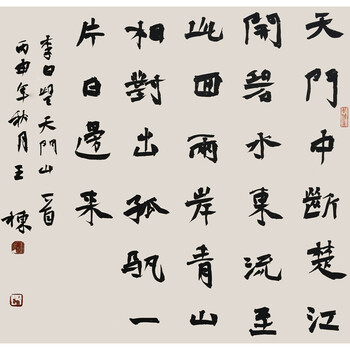 天門中斷楚江
開碧水東流至
此回兩岸青山
相對出孤帆一
片日邊来
李白望天門山一首
丙申年秋月王棟